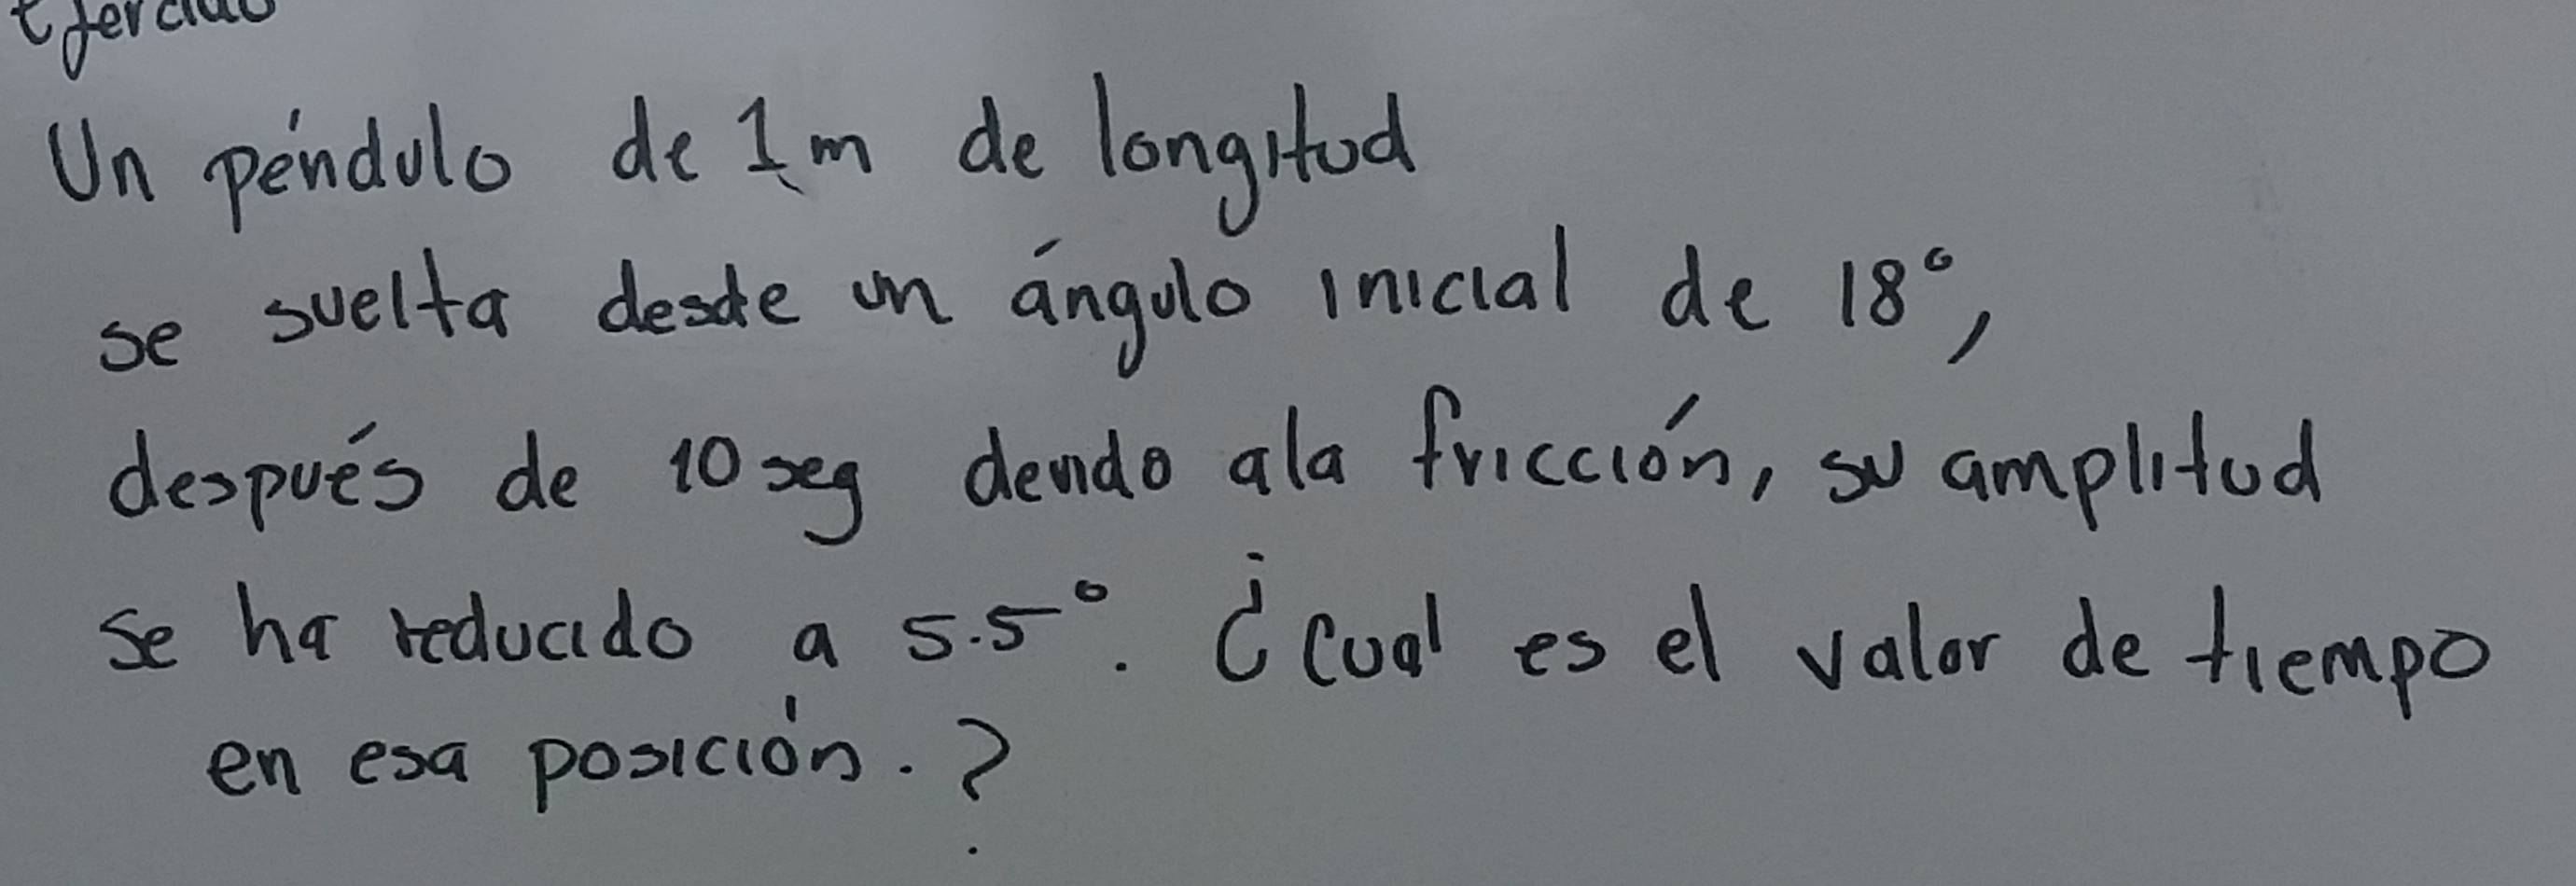 Ejercicio
Un péndulo de 1m de longitud
se suelta desde un ángulo inicial de 18°,
después de 10 seg dendo ala fricción, su amplitud
se ha reducido a 5.5°. ¿Cual es el valor de tiempo
en esa posición.?